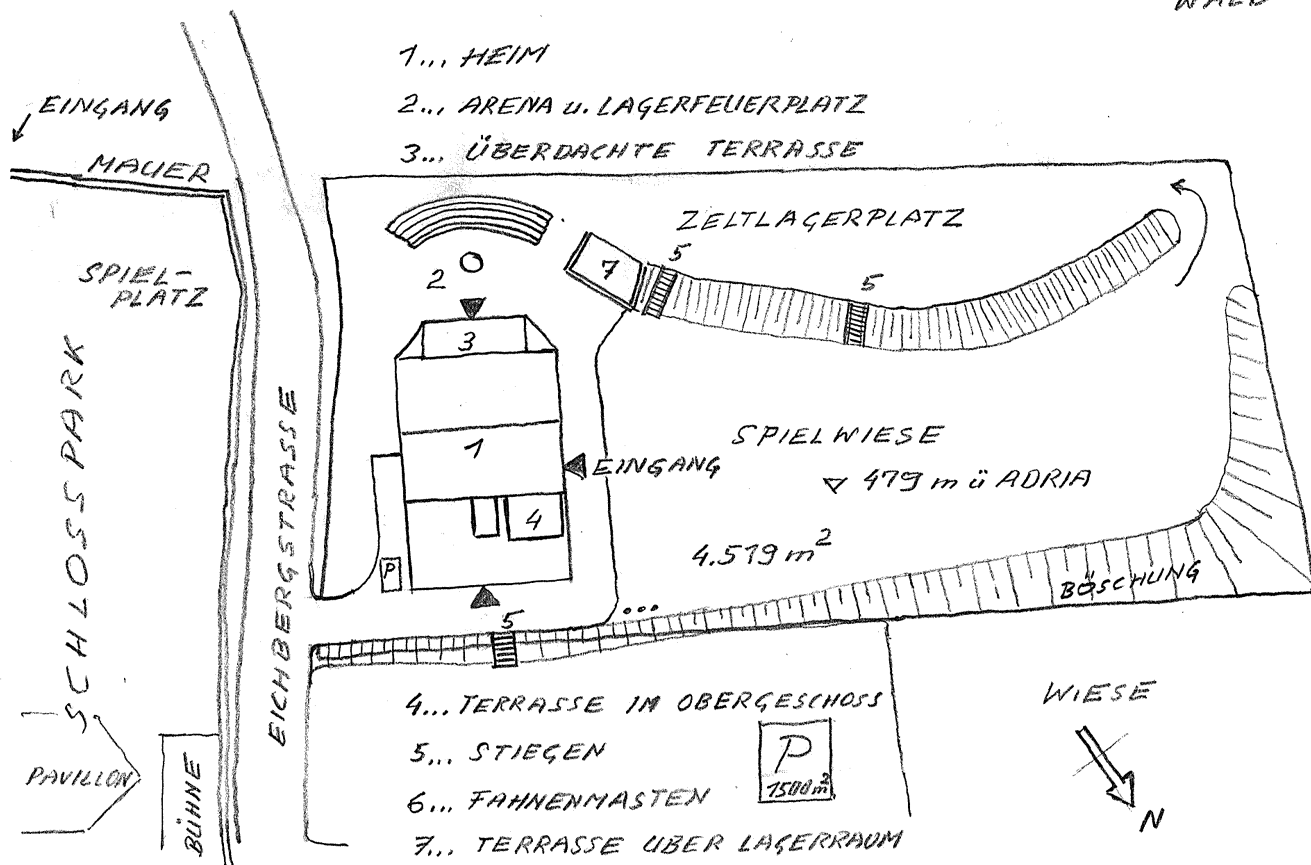 WALD
1... HEIM
2... ARENA u. LAGERFEUERPLATZ
3... ÜBERDACHTE TERRASSE
EINGANG
MAUER
SPIEL-
PLATZ
SCHLOSSPARK
EICHBERGSTRASSE
ZELTLAGERPLATZ
5
7
5
2
3
1
EINGANG
SPIELWIESE
479 m ü ADRIA
4
4.519 m²
P
BÖSCHUNG
5
4... TERRASSE IM OBERGESCHOSS
5... STIEGEN
6... FAHNENMASTEN
7... TERRASSE ÜBER LAGERRAUM
P
1500 m²
WIESE
N
PAVILLON
BÜHNE